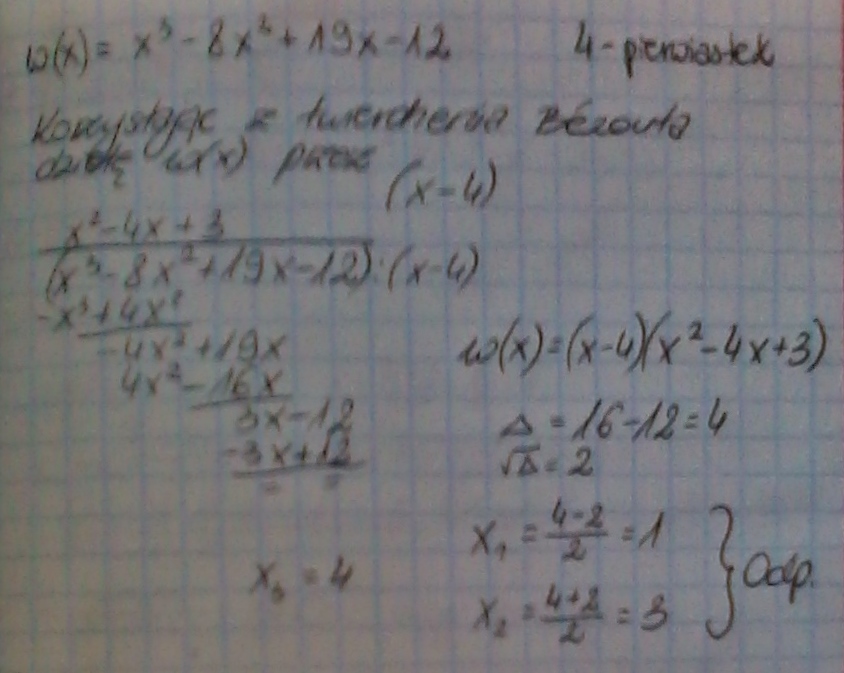 w(x) = x³ - 8x² + 19x - 12    4 - pierwiastek
Korzystając z twierdzenia Bézouta
dzielę w(x) przez (x-4)
x² - 4x + 3
(x³ - 8x² + 19x - 12) : (x-4)
-x³ + 4x²
-4x² + 19x
4x² - 16x
3x - 12
-3x + 12
= =
w(x) = (x-4)(x² - 4x + 3)
Δ = 16 - 12 = 4
√Δ = 2
x₁ = (4-2)/2 = 1
x₂ = (4+2)/2 = 3
} Odp.
x₃ = 4